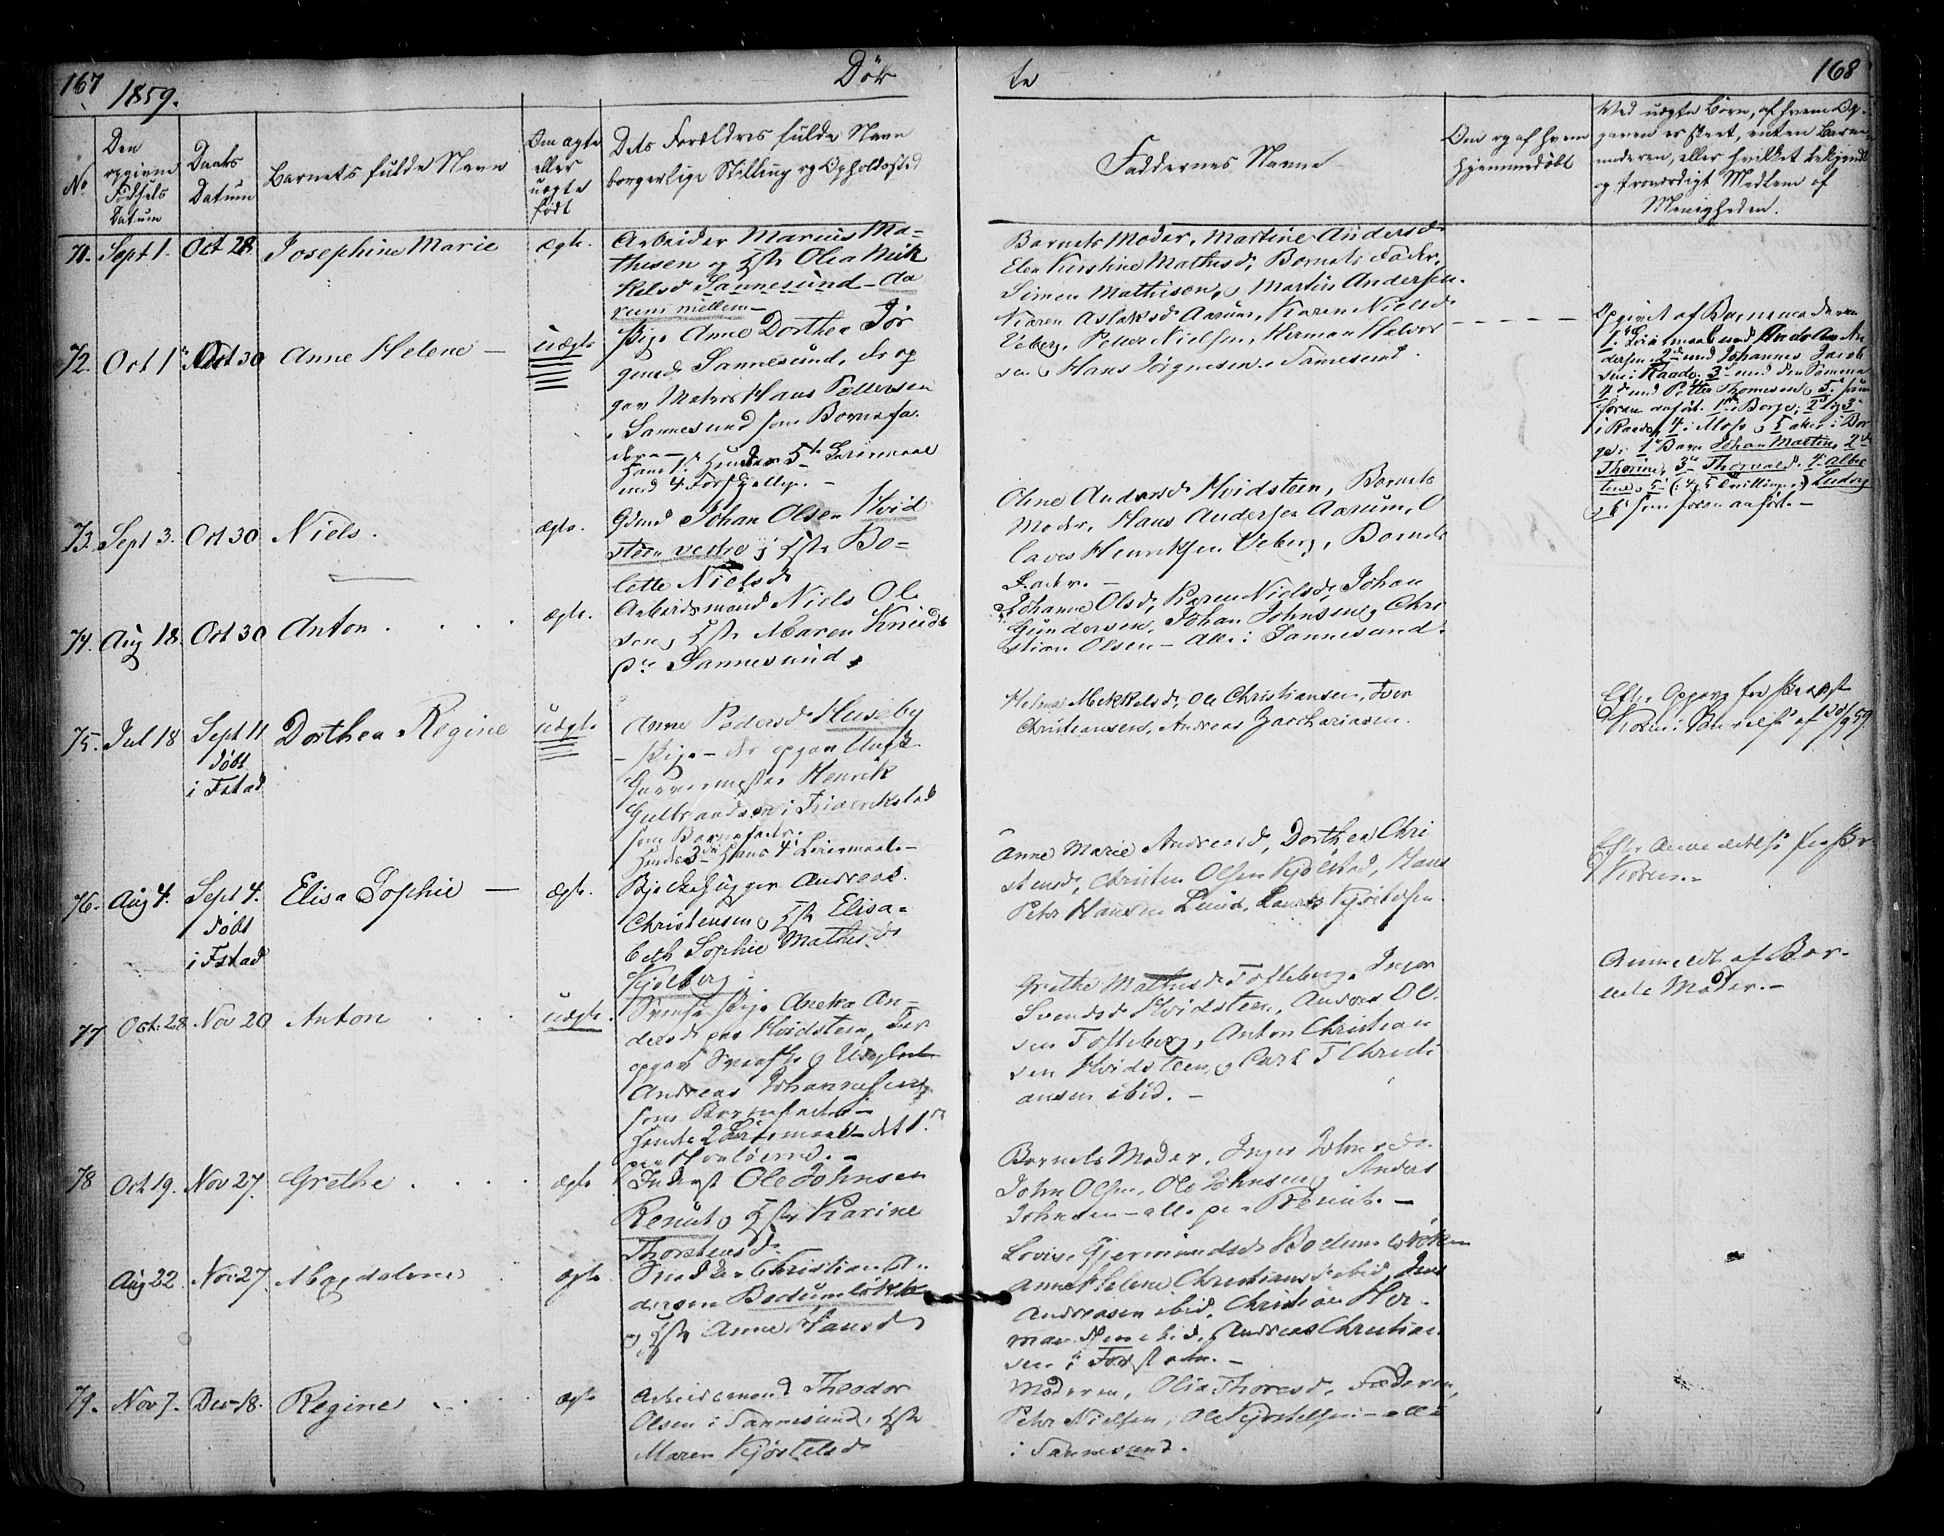 167
1859.
Døb
te
168
No
Den
opgivne
Fødsels
Datum
Daabs
Datum
Barnets fulde Navn
Om ægte
eller
uægte
født
Dets Forældres fulde Navn
borgerlige Stilling og Opholdssted
Faddernes Navne
Om og af hvem
hjemmedøbt
Ved uægte Børn, af hvem Op-
gaven er skeet, enten Barne
moderen, eller hvilket bekjendt
og troværdigt Medlem af
Menigheden.
71. Sept 1. Oct 28 Josephine Marie ægte.
Arbeider Marius Ma=
thisen og Hst Olea Mik
kelsd Sannesund
Barnets Moder, Martine Andersd
Elen Kirstine Mathisd, Barnets Fader,
Simen Mathisen, og Martin Andersen.
72. Oct 1 Oct 30 Anne Helene — uægte
Pige Anne Dorthea Jør
gensd Sannesund, der op
gav Matros Hans Pettersen
i Sannesund som Barnefa-
der —
Hans 1ste Hendes 5te Leiermaal
med 4
Karen Aslaksd Aarum, Karen Nielsd
Veberg, Petter Nielsen, Herman Halvor
sen og Hans Jørgensen i Sannesund.
Opgivet af Barnemoderen
1ste Leiermaal med Andreas An
dersen, 2det med Johannes Jacob
sen i Raade, 3
4de med Petter Thomesen, 5
foran anført. 1ste i Borge, 2 og 3
i Raade, 4 i Moss, 5 atter i Bor
ge. 1ste Barn Johan Martin, 2det
Thorine, 3de Thorvald, 4 Alber
tine, 5 (: 4 og 5 Tvillinger :) Ludvig
og 6 som foran anført. —
73. Sept 3. Oct 30 Niels. ægte.
Gbmd Johan Olsen Hvid
steen vestre og Hst Bo=
lette Nielsd
Oline Andersd Hvidsteen, Barnets
Moder, Hans Andersen Aarum, O
laves Henriksen Veberg, Barnets
Fader. —
74. Aug 18. Oct 30 Anton. ægte.
Arbeidsmand Niels Ol
sen og Hst Maren Knuds
d. Sannesund.
Johanne Olsd, Karen Nielsd, Johan
Gundersen, Johan Johnsen og Chri
stian Olsen — Alle i Sannesund.
75. Jul 18 Sept 11 Dorthea Regine uægte
døbt
i Fstad
Anne Pedersd Huseby
— Pige — der opgav Ungk.
Garvermester Henrik
Gulbrandsen i Frederikstad
som Barnefader.
Hendes 3die Hans 4 Leiermaal. —
Helene Mikkelsd, Ole Christiansen, Iver
Christiansen, Andreas Zachariasen.
Efter Opgave fra Provst
Koren i Skrivelse af 20/9 59.
76. Aug 4. Sept 4. Elisa Sophie — ægte.
døbt
i Fstad
Andreas
Christensen og Hst Elisa=
beth Sophie Mathisd
Kjølberg.
Anne Marie Andreasd, Dorthea Chri
stensd, Christen Olsen Kjølstad, Hans
Peter Hansen Lund,
Efter Anmeldelse fra Pr
Koren. —
77 Oct. 28. Nov 20 Anton uægte.
Pige Aneka An=
dersd paa Hvidsteen, der
opgav
Andreas Johannesen
som Barnefader —
hendes 2 Leiermaal — det 1ste
Grethe Mathisd Tofteberg, Inger
Svendsd Hvidsteen, Anders Ol
sen Tofteberg, Anton Christian
sen Hvidsteen og Carl T Christi
ansen ibid. —
Anmeldt af Bar-
nets Moder. —
78 Oct. 19. Nov 27. Grethe ægte
Inderst Ole Johnsen
Remut og Hst Karine
Thorstensd.
Barnets Moder, Inger Johnsd.
John Olsen, Ole Johnsen og Anders
Johnsen — alle paa Remut. —
Aug 22. Nov 27. Magdalene ægte
Snedker Christian An
dersen Borumløkke
og Hst Anne Hansd
Lovise Gjermundsd
Anne Helene Christiansd ibid, Jens
Andreasen ibid, Christian Her-
mansen ibid, Andreas Christian
sen i
79. Nov 7. Dec 18. Regine ægte
Arbeidsmand Theodor
Olsen i Sannesund, Hst
Maren Kjøstelsd
Moderen, Olia Thoresd, Faderen,
Peter Nielsen, Ole Kjøstelsen — alle
i Sannesund.